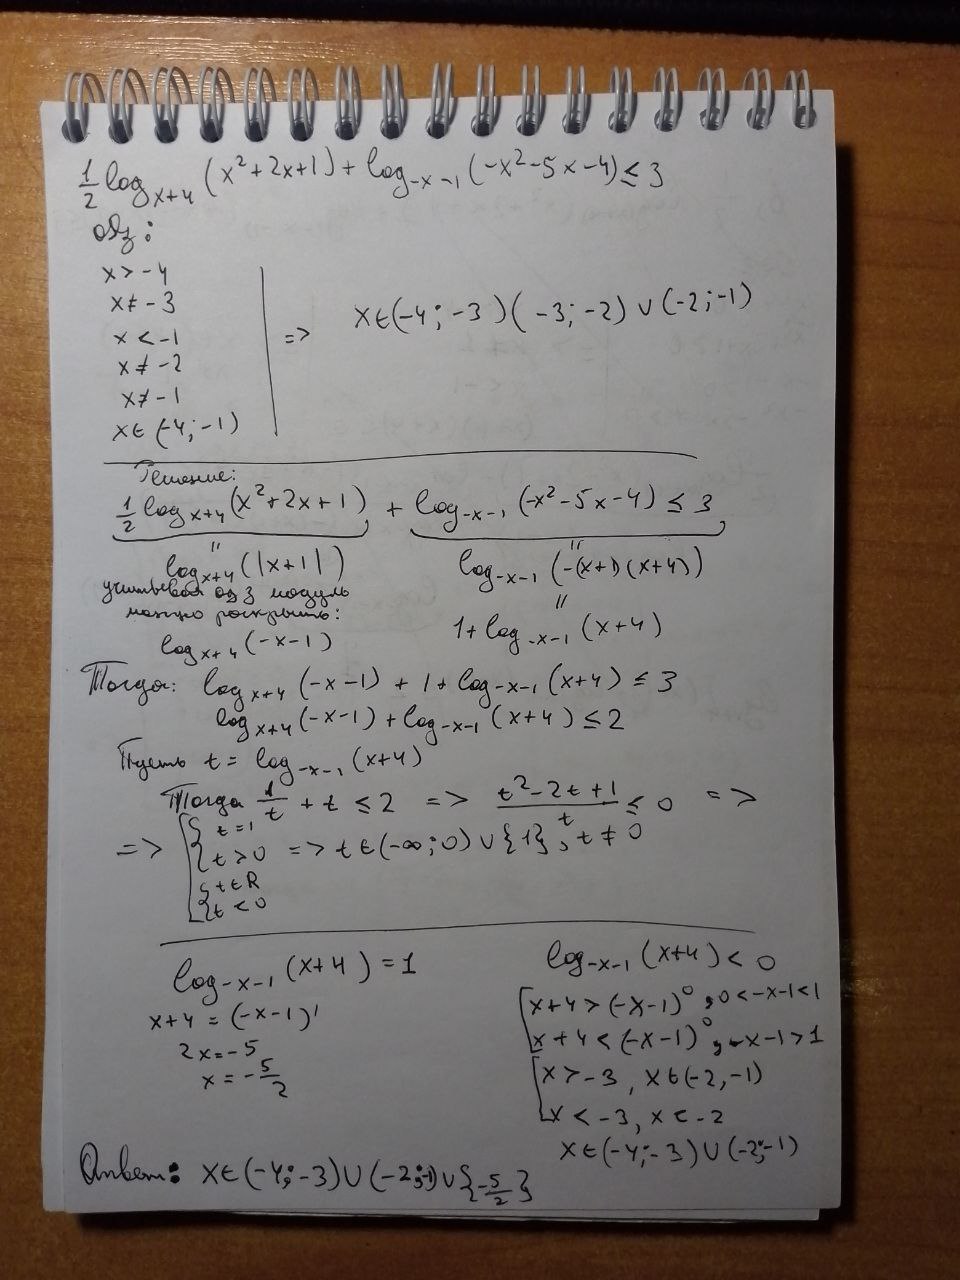 1/2 log_{x+4} (x²+2x+1) + log_{-x-1} (-x²-5x-4) ≤ 3
одз:
x > -4
x ≠ -3
x < -1
x ≠ -2
x ≠ -1
x ∈ (-4; -1)
=> x ∈ (-4; -3) (-3; -2) ∪ (-2; -1)
Решение:
1/2 log_{x+4} (x²+2x+1) + log_{-x-1} (-x²-5x-4) ≤ 3
" "
log_{x+4} (|x+1|) log_{-x-1} (-(x+1)(x+4))
учитывая одз модуль "
можно раскрыть: 1 + log_{-x-1} (x+4)
log_{x+4} (-x-1)
Тогда: log_{x+4} (-x-1) + 1 + log_{-x-1} (x+4) ≤ 3
log_{x+4} (-x-1) + log_{-x-1} (x+4) ≤ 2
Пусть t = log_{-x-1} (x+4)
Тогда 1/t + t ≤ 2 => (t²-2t+1)/t ≤ 0 =>
=> [ { t=1
{ t>0 => t ∈ (-∞; 0) ∪ {1}, t ≠ 0
{ t ∈ R
{ t < 0
log_{-x-1} (x+4) = 1
x+4 = (-x-1)¹
2x = -5
x = -5/2
log_{-x-1} (x+4) < 0
[ x+4 > (-x-1)⁰, 0 < -x-1 < 1
x+4 < (-x-1)⁰, -x-1 > 1
[ x > -3, x ∈ (-2, -1)
x < -3, x < -2
x ∈ (-4; -3) ∪ (-2; -1)
Ответ: x ∈ (-4; -3) ∪ (-2; -1) ∪ {-5/2}